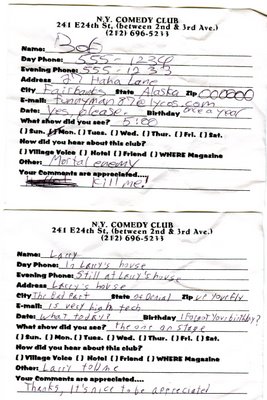 N.Y. COMEDY CLUB
241 E24th St, (between 2nd & 3rd Ave.)
(212) 696-5233
Name: Bob
Day Phone: 555-1234
Evening Phone: 555-1233
Address 27 Haha Lane
City Fairbanks State Alaska Zip 000000
E-mail: funnyman87@lycos.com
Date: Yes, please. Birthday once a year
What show did you see? 5:00
( ) Sun. ( ) Mon. ( ) Tues. ( ) Wed. ( ) Thur. ( ) Fri. ( ) Sat.
How did you hear about this club?
( ) Village Voice ( ) Hotel ( ) Friend ( ) WHERE Magazine
Other: Mortal enemy
Your Comments are appreciated....
Kill me!
N.Y. COMEDY CLUB
241 E24th St, (between 2nd & 3rd Ave.)
(212) 696-5233
Name: Larry
Day Phone: In Larry's house
Evening Phone: Still at Larry's house
Address Larry's house
City The Bad Part State of Denial Zip up your fly
E-mail: is very high tech
Date: what, today? Birthday I forgot your birthday?
What show did you see? the one on stage
( ) Sun. ( ) Mon. ( ) Tues. ( ) Wed. ( ) Thur. ( ) Fri. ( ) Sat.
How did you hear about this club?
( ) Village Voice ( ) Hotel ( ) Friend ( ) WHERE Magazine
Other: Larry told me
Your Comments are appreciated....
Thanks, it's nice to be appreciated